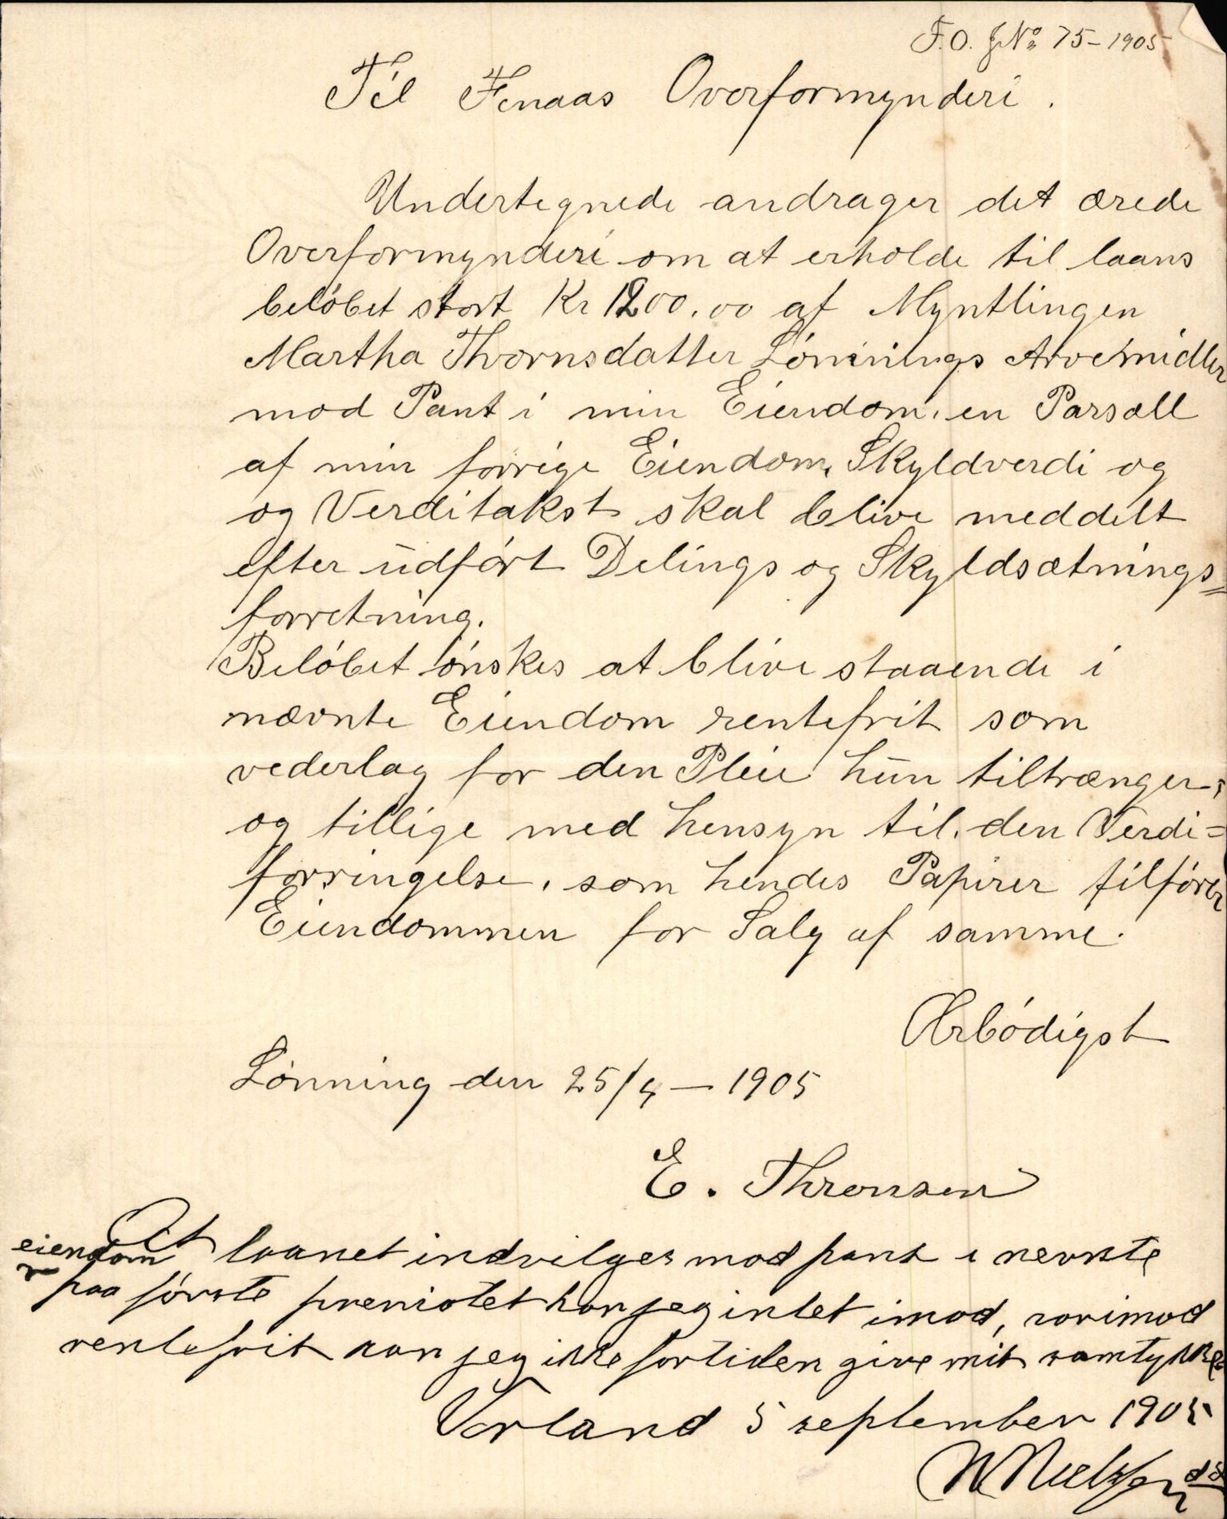 F.O. J No 75-1905
Til Finaas Overformynderi.
Undertegnede andrager det ærede
Overformynderi om at erholde til laans
beløbet stort Kr 1200.00 af Myntlingen
Martha Thvornsdatter Lønnings Arvemidler
mod Pant i min Eiendom, en Parsæll
af min forrige Eiendom, Skyldverdi og
og Verditakst skal blive meddelt
efter udført Delings og Skyldsætnings=
forretning.
Beløbet ønskes at blive staaende i
nævnte Eiendom rentefrit som
vederlag for den Pleie hun tiltrænger,
og tillige med hensyn til den Verdi=
forringelse, som hendes Papirer tilfører
Eiendommen for Salg af samme.
Ærbødigst
Lønning den 25/4 — 1905
E. Thronsen
At laanet indvilges mod pant i nevnte
eiendom
paa første preriotet har jeg intet imod, rorimod
rentefrit kan jeg ikke fortiden give mit samtykke
Vorland 5 september 1905
N Nielsen